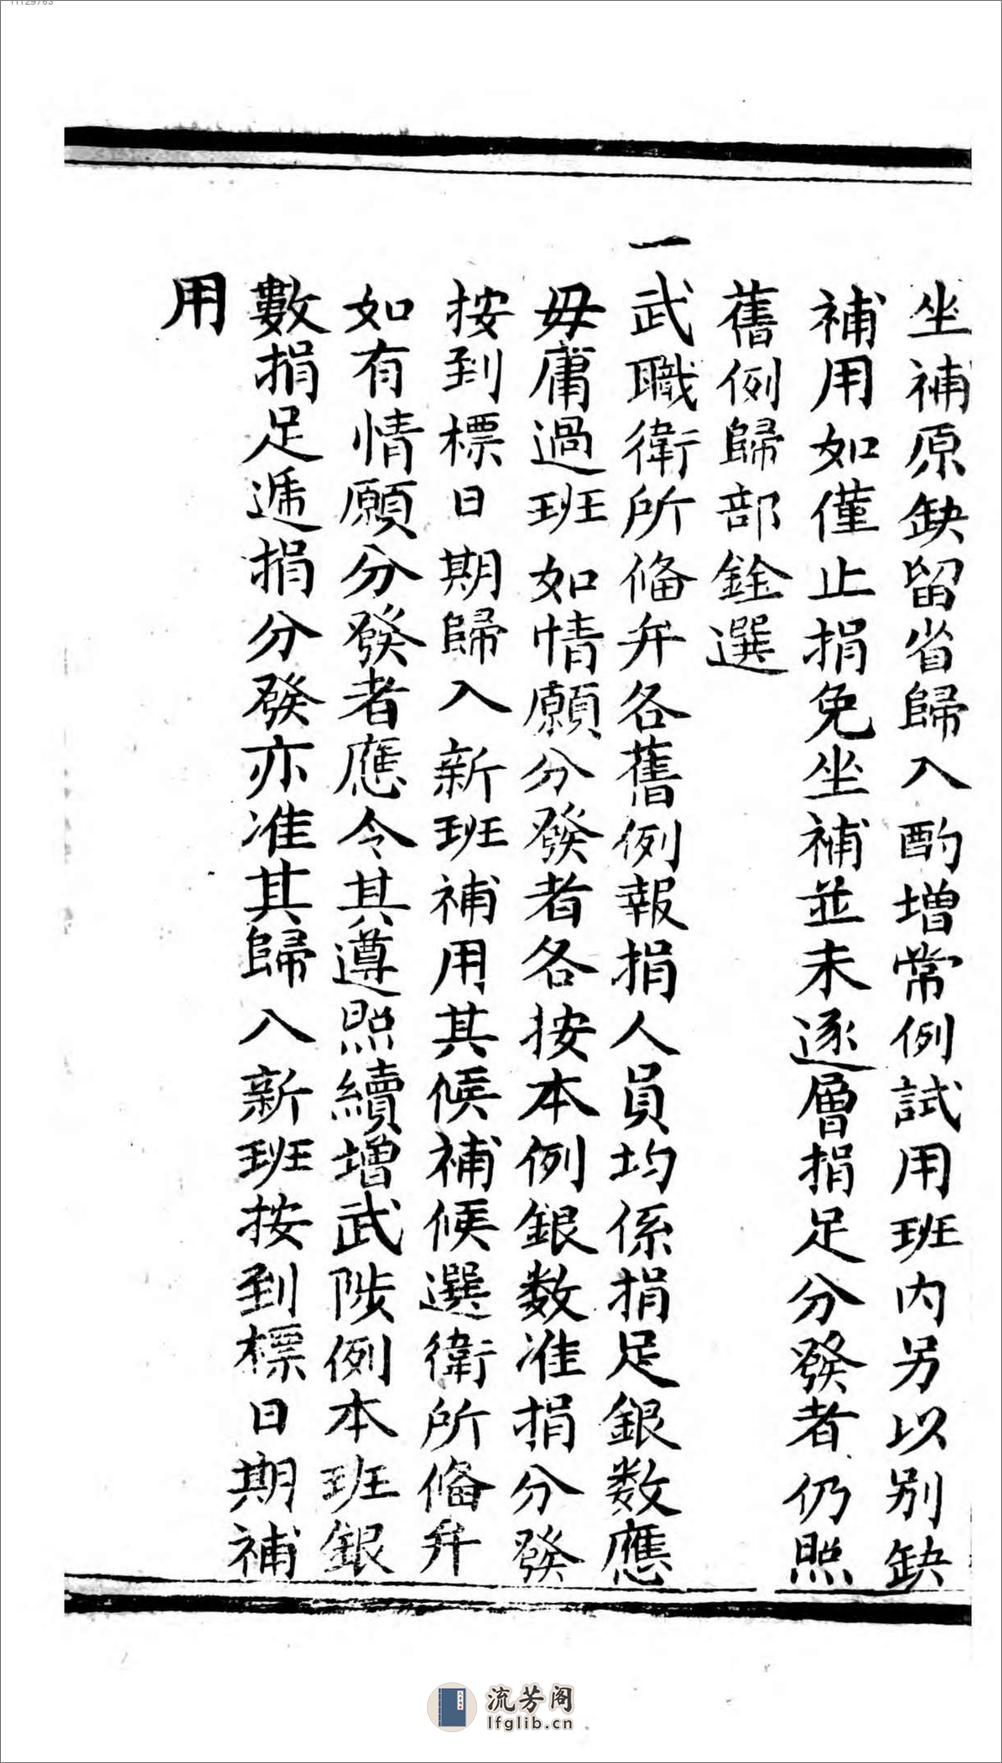 坐補原缺留省歸入酌增常例試用班内另以别缺
補用如僅止捐免坐補並未逐層捐足分發者仍照
舊例歸部銓選
一武職衛所俻弁各舊例報捐人員均係捐足銀数應
毋庸過班如情願分發者各按本例銀数准捐分發
按到標日期歸入新班補用其候補候選衛所俻弁
如有情願分發者應令其遵照續增武陟例本班銀
數捐足遞捐分發亦准其歸入新班按到標日期補
用
流芳阁
lfglib.cn